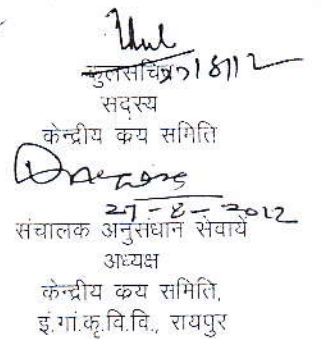 कुलसचिव
सदस्य
केन्द्रीय क्रय समिति
27-8-2012
संचालक अनुसंधान सेवायें
अध्यक्ष
केन्द्रीय क्रय समिति,
इं.गां.कृ.वि.वि., रायपुर